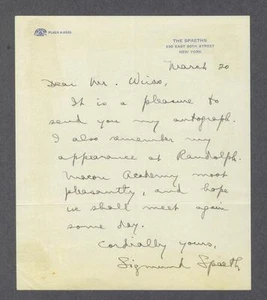 THE SPAETHS
EAST 58TH STREET
NEW YORK
March 20
Dear Mr. Wiiso,
It is a pleasure to
send you my autograph.
I also remember my
appearance at Randolph-
Macon Academy most
pleasantly, and hope
we shall meet again
some day.
Cordially yours,
Sigmund Spaeth